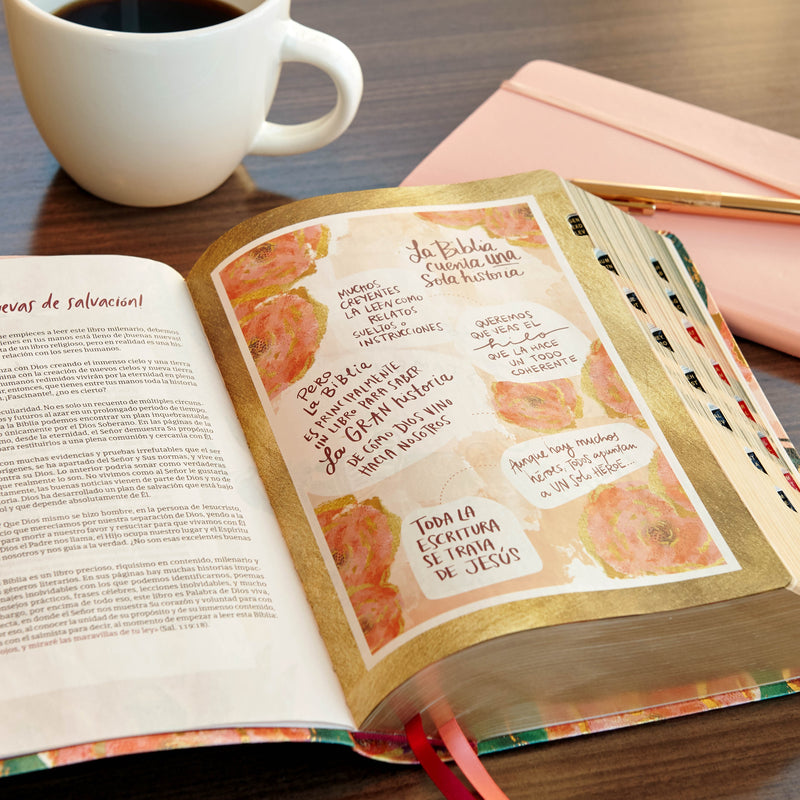 evas de salvación!
e empieces a leer este libro milenario, debemos
en tus manos está lleno de ¡buenas nuevas!
ta de un libro religioso, pero en realidad es una his-
relación con los seres humanos.
nza con Dios creando el inmenso cielo y una tierra
mina con la creación de nuevos cielos y nueva tierra
humanos redimidos vivirán por la eternidad en plena
entonces, que tienes entre tus manos toda la historia
¡Fascinante!, ¿no es cierto?
cularidad. No es solo un recuento de múltiples circuns-
y futuros al azar en un prolongado periodo de tiempo.
la Biblia podemos encontrar un plan inquebrantable
únicamente por el Dios Soberano. En las páginas de la
mo, desde la eternidad, el Señor demuestra Su propósito
restituirlos a una plena comunión y cercanía con Él.
con muchas evidencias y pruebas irrefutables que el ser
orígenes, se ha apartado del Señor y Sus normas, y vive en
contra su Dios. Lo anterior podría sonar como verdaderas
que realmente lo son. No vivimos como al Señor le gusta
tamente, las buenas noticias vienen de parte de Dios y no de
toria. Dios ha desarrollado un plan de salvación que está bajo
ol y que depende absolutamente de Él.
Que Dios mismo se hizo hombre, en la persona de Jesucristo,
cio que merecíamos por nuestra separación de Dios,
para morir a nuestro favor y resucitar para que vivamos con Él
Dios el Padre nos llama, el Hijo ocupa nuestro lugar y el Espíritu
nosotros y nos guía a la verdad. ¿No son esas excelentes buenas
Biblia es un libro precioso, riquísimo en contenido, milenario y
géneros literarios. En sus páginas hay muchas historias impac-
najes inolvidables con los que podemos identificarnos, poemas
onsejos prácticos, frases célebres, lecciones inolvidables, y mucho
bargo, por encima de todo eso, este libro es Palabra de Dios viva,
ecta, en donde el Señor nos muestra Su corazón y voluntad para con
or eso, al conocer la unidad de su propósito y de su inmenso contenido,
con el salmista para decir, al momento de empezar a leer esta Biblia:
ojos, y miraré las maravillas de tu ley» (Sal. 119:18).
La Biblia
cuenta una
Sola historia
MUCHOS
CREYENTES
LA LEEN COMO
RELATOS
SUELTOS O
INSTRUCCIONES
QUEREMOS
QUE VEAS EL
hilo
QUE LA HACE
UN TODO
COHERENTE
PERO
La Biblia
ES PRINCIPALMENTE
UN LIBRO PARA SABER
La GRAN historia
DE CÓMO DIOS VINO
HACIA NOSOTROS
Aunque hay muchos
héroes, TODOS apuntan
a UN Solo HÉROE...
TODA LA
ESCRITURA
SE TRATA
DE JESÚS